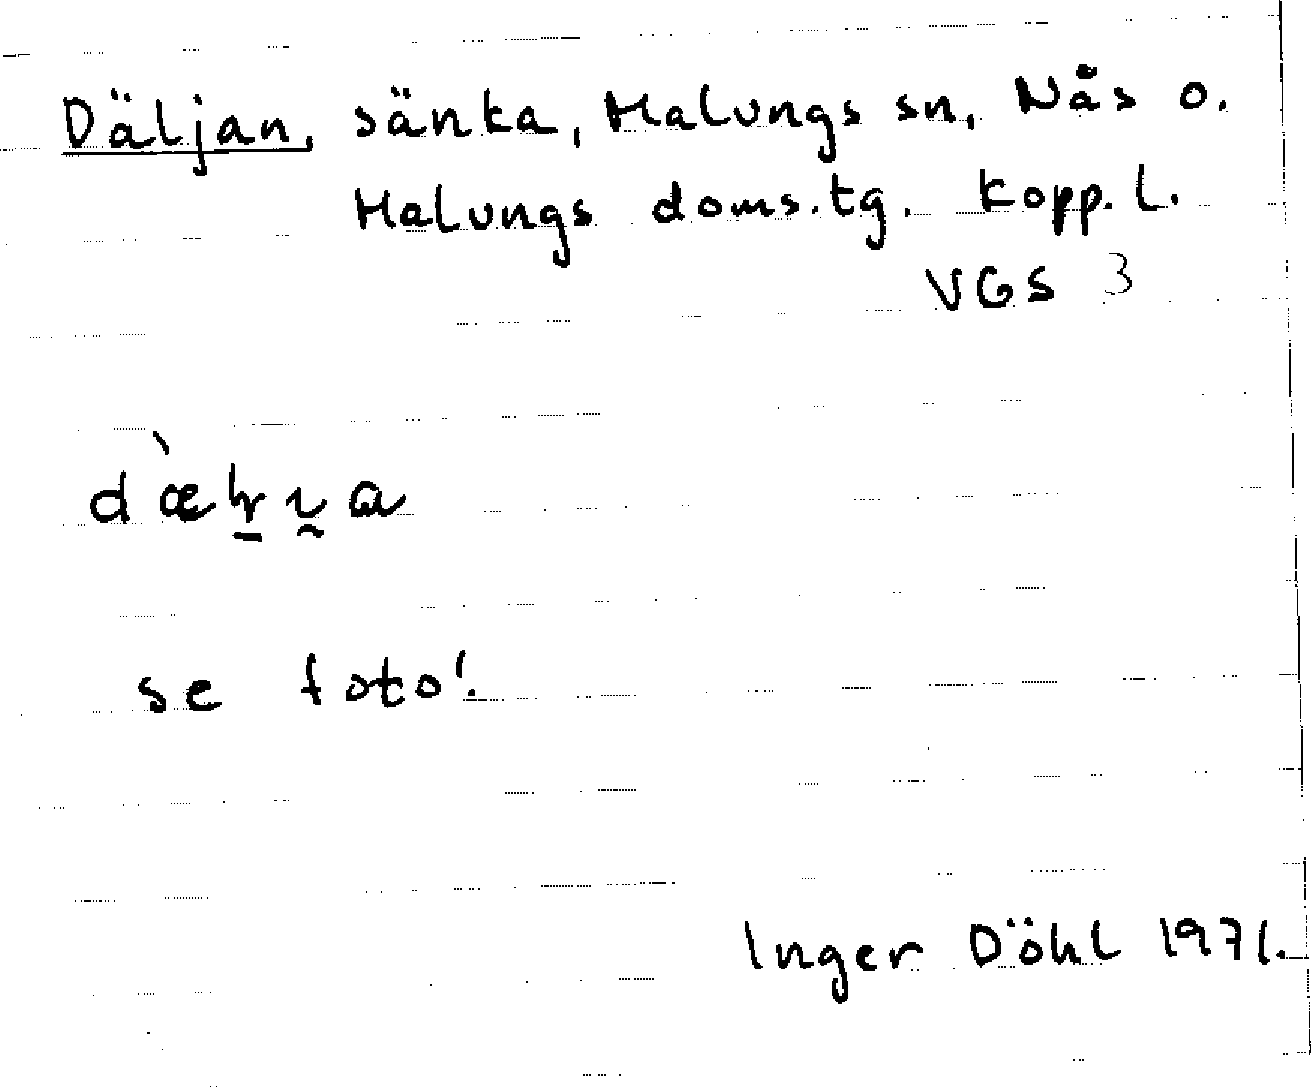 Däljan, sänka, Malungs sn, Nås o.
Malungs doms.tg. Kopp. l.
VGS 3
se foto!
Inger Döhl 1971.